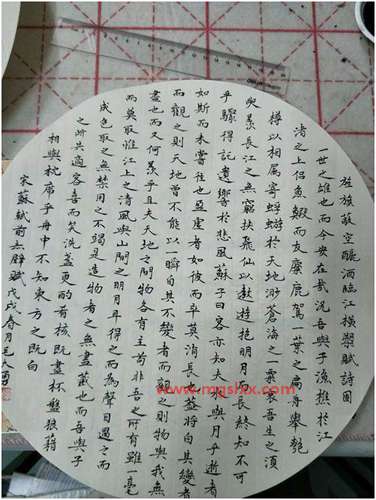 旌旗蔽空釃酒臨江橫槊賦詩固
一世之雄也而今安在哉況吾與子漁樵於江
渚之上侶魚蝦而友麋鹿駕一葉之扁舟舉匏
樽以相屬寄蜉蝣於天地渺蒼海之一粟哀吾生之須
臾羨長江之無窮挾飛仙以遨遊抱明月而長終知不可
乎驟得託遺響於悲風蘇子曰客亦知夫水與月乎逝者
如斯而未嘗往也盈虛者如彼而卒莫消長也蓋將自其變者
而觀之則天地曾不能以一瞬自其不變者而觀之則物與我無
盡也而又何羨乎且夫天地之間物各有主苟非吾之所有雖一毫
而莫取惟江上之清風與山間之明月耳得之而為聲目遇之而
成色取之無禁用之不竭是造物者之無盡藏也而吾與子
之所共適客喜而笑洗盞更酌肴核既盡杯盤狼藉
相與枕席乎舟中不知東方之既白
宋蘇軾前赤壁賦戊戌春月毛
www.mgshxx.com